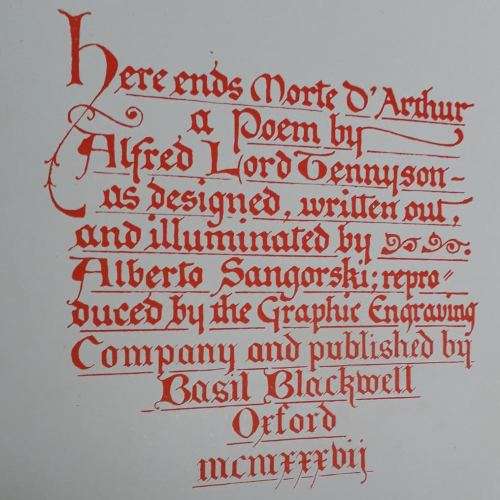 Here ends Morte D'Arthur
a Poem by
Alfred Lord Tennyson-
as designed, written out,
and illuminated by
Alberto Sangorski; repro=
duced by the Graphic Engraving
Company and published by
Basil Blackwell
Oxford
mcmxxxvij